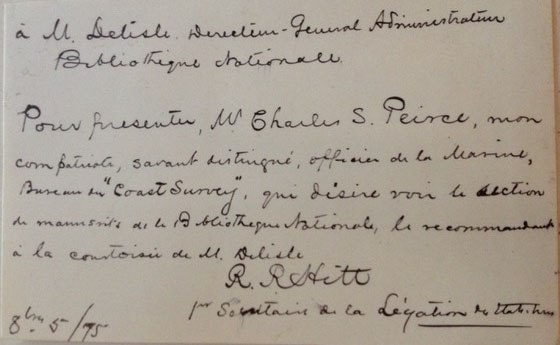 à M. Delisle. Directeur-General Administrateur
Bibliothèque Nationale.
Pour presenter, Mr Charles S. Peirce, mon
compatriote, savant distingué, officier de la Marine,
Bureau du "Coast Survey", qui désire voir le section
de manuscrits de la Bibliotheque Nationale, le recommandant
à la courtoisie de M. Delisle
R. R Hitt
1er Secretaire de la Légation des Etats-Unis
8bre 5/75